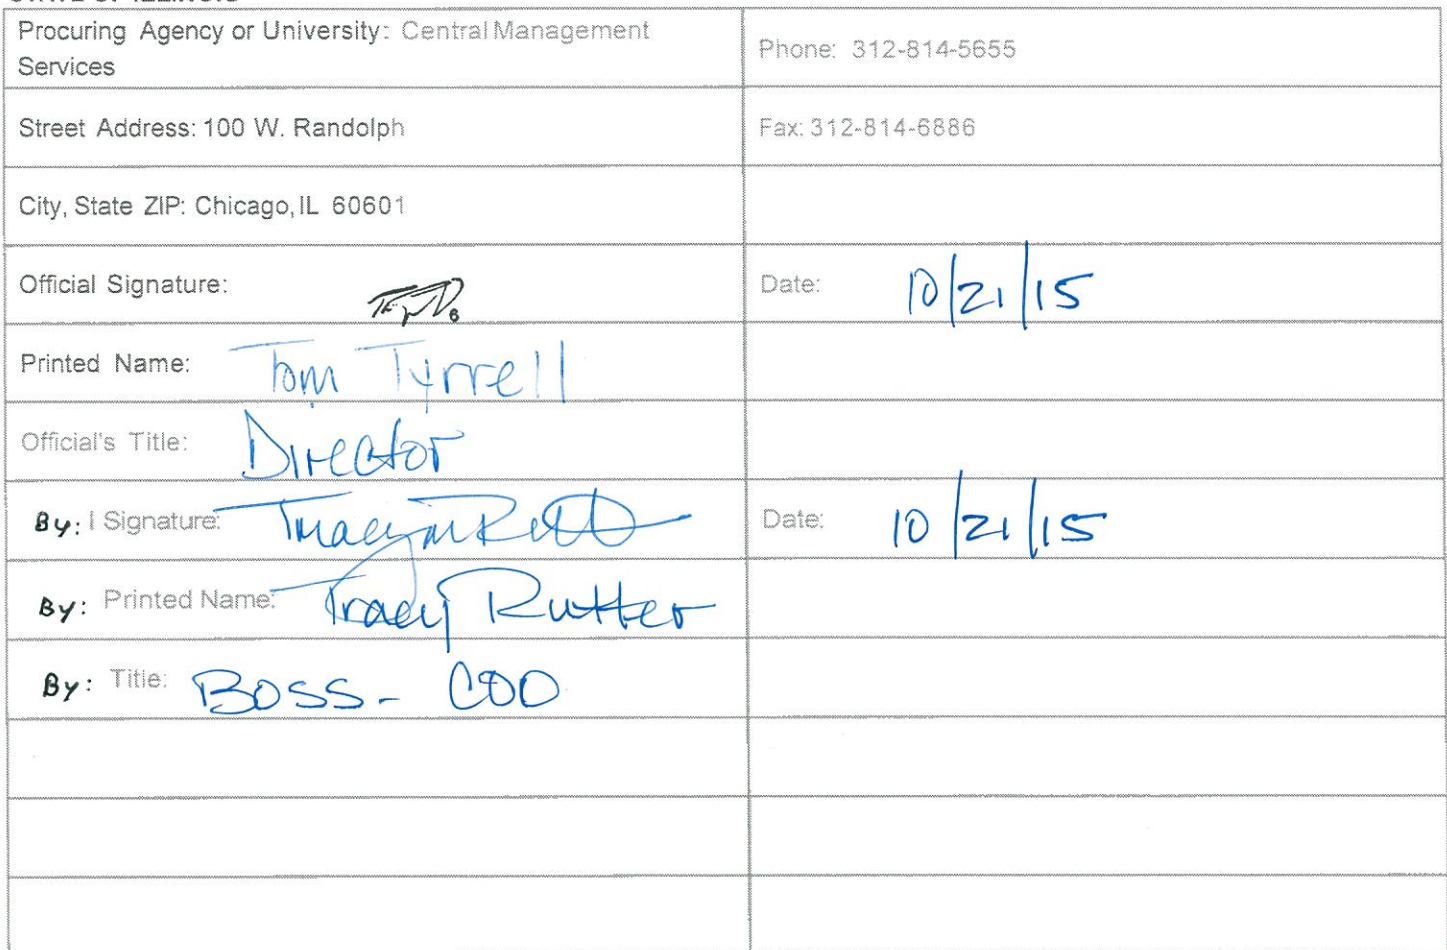 STATE OF ILLINOIS
Procuring Agency or University: Central Management
Services
Phone: 312-814-5655
Street Address: 100 W. Randolph
Fax: 312-814-6886
City, State ZIP: Chicago, IL 60601
Official Signature:
Date: 10/21/15
Printed Name: Tom Tyrrell
Official's Title: Director
By: | Signature: Tracy Rutter
Date: 10/21/15
By: Printed Name: Tracy Rutter
By: Title: BOSS - COO